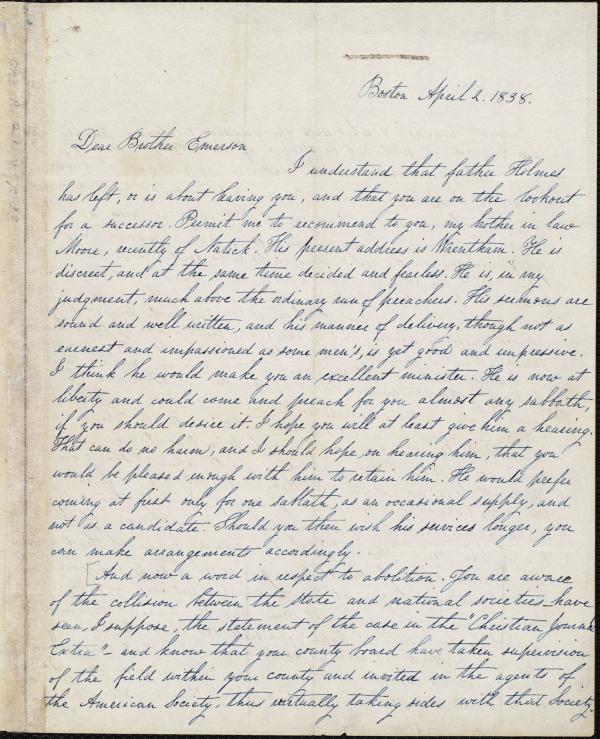 Boston April 2. 1838.
Dear Brother Emerson
I understand that father Holmes
has left, or is about leaving you, and that you are on the lookout
for a successor. Permit me to recommend to you, my brother in law
Moore, recently of Natick. His present address is Wrentham. He is
discreet, and at the same time decided and fearless. He is, in my
judgment, much above the ordinary run of preachers. His sermons are
sound and well written, and his manner of delivery, though not as
earnest and impassioned as some men's, is yet good and impressive.
I think he would make you an excellent minister. He is now at
liberty and could come and preach for you almost any sabbath,
if you should desire it. I hope you will at least give him a hearing.
That can do no harm, and I should hope, on hearing him, that you
would be pleased enough with him to retain him. He would prefer
coming at first only for one sabbath, as an occasional supply, and
not as a candidate. Should you then wish his services longer, you
can make arrangements accordingly.
[And now a word in respect to abolition. You are aware
of the collision between the state and national societies have
seen, I suppose, the statement of the case in the "Christian Journal
Extra" - and know that your county board have taken supervision
of the field within your county and invited in the agents of
the American Society, thus virtually taking sides with that Society.